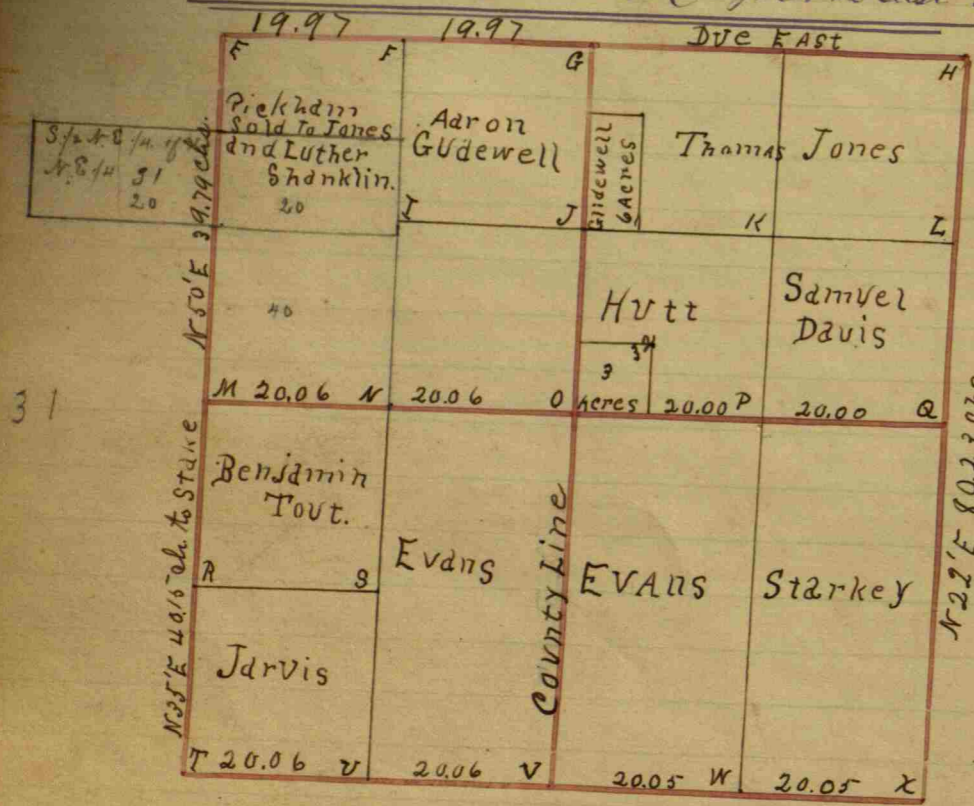 19.97
19.97
Due EAst
E
F
G
H
Pickham
Sold To Jones
and Luther
Shanklin.
20
Aaron
Gudewell
Glidewell
6 Acres
Thomas Jones
S. 1/2 N. E 1/4 of
N. E 1/4 31
20
I
J
K
L
N 50' E 39.79 chs.
40
Hutt
3
acres
Samuel
Davis
M 20.06 N
20.06 O
20.00 P
20.00 Q
31
N 35' E 40.15 ch to Stake
Benjamin
Tout.
R
S
Evans
County Line
EVAns
Starkey
N 22' E 80.23
Jarvis
T 20.06 U
20.06 V
20.05 W
20.05 X